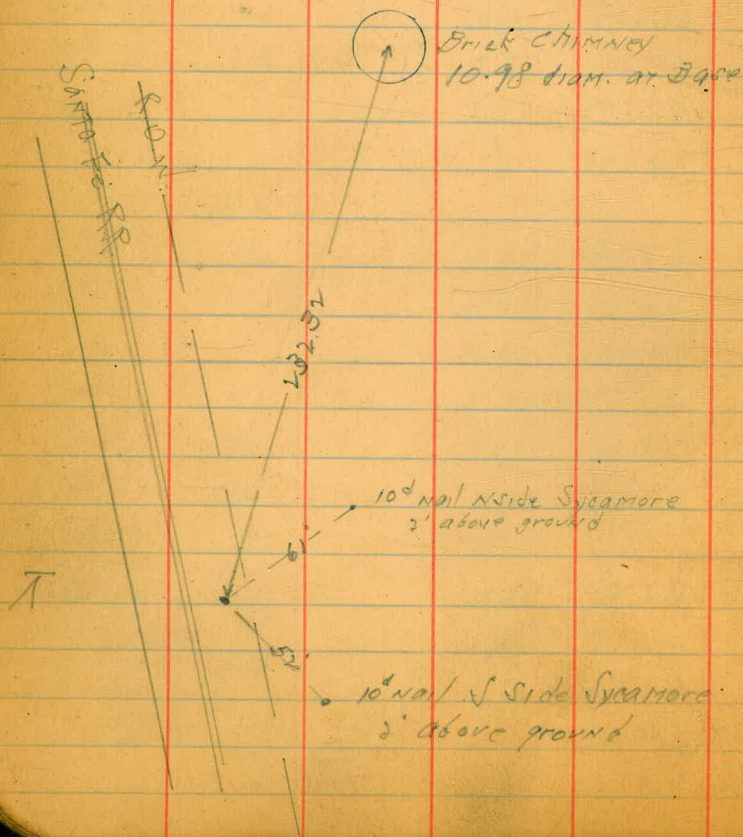 Brick Chimney
10.98 diam. at Base
Santa Fe RR
R.O.W.
232.32
10d Nail N Side Sycamore
2' above ground
61'
52'
10d Nail S Side Sycamore
2' above ground